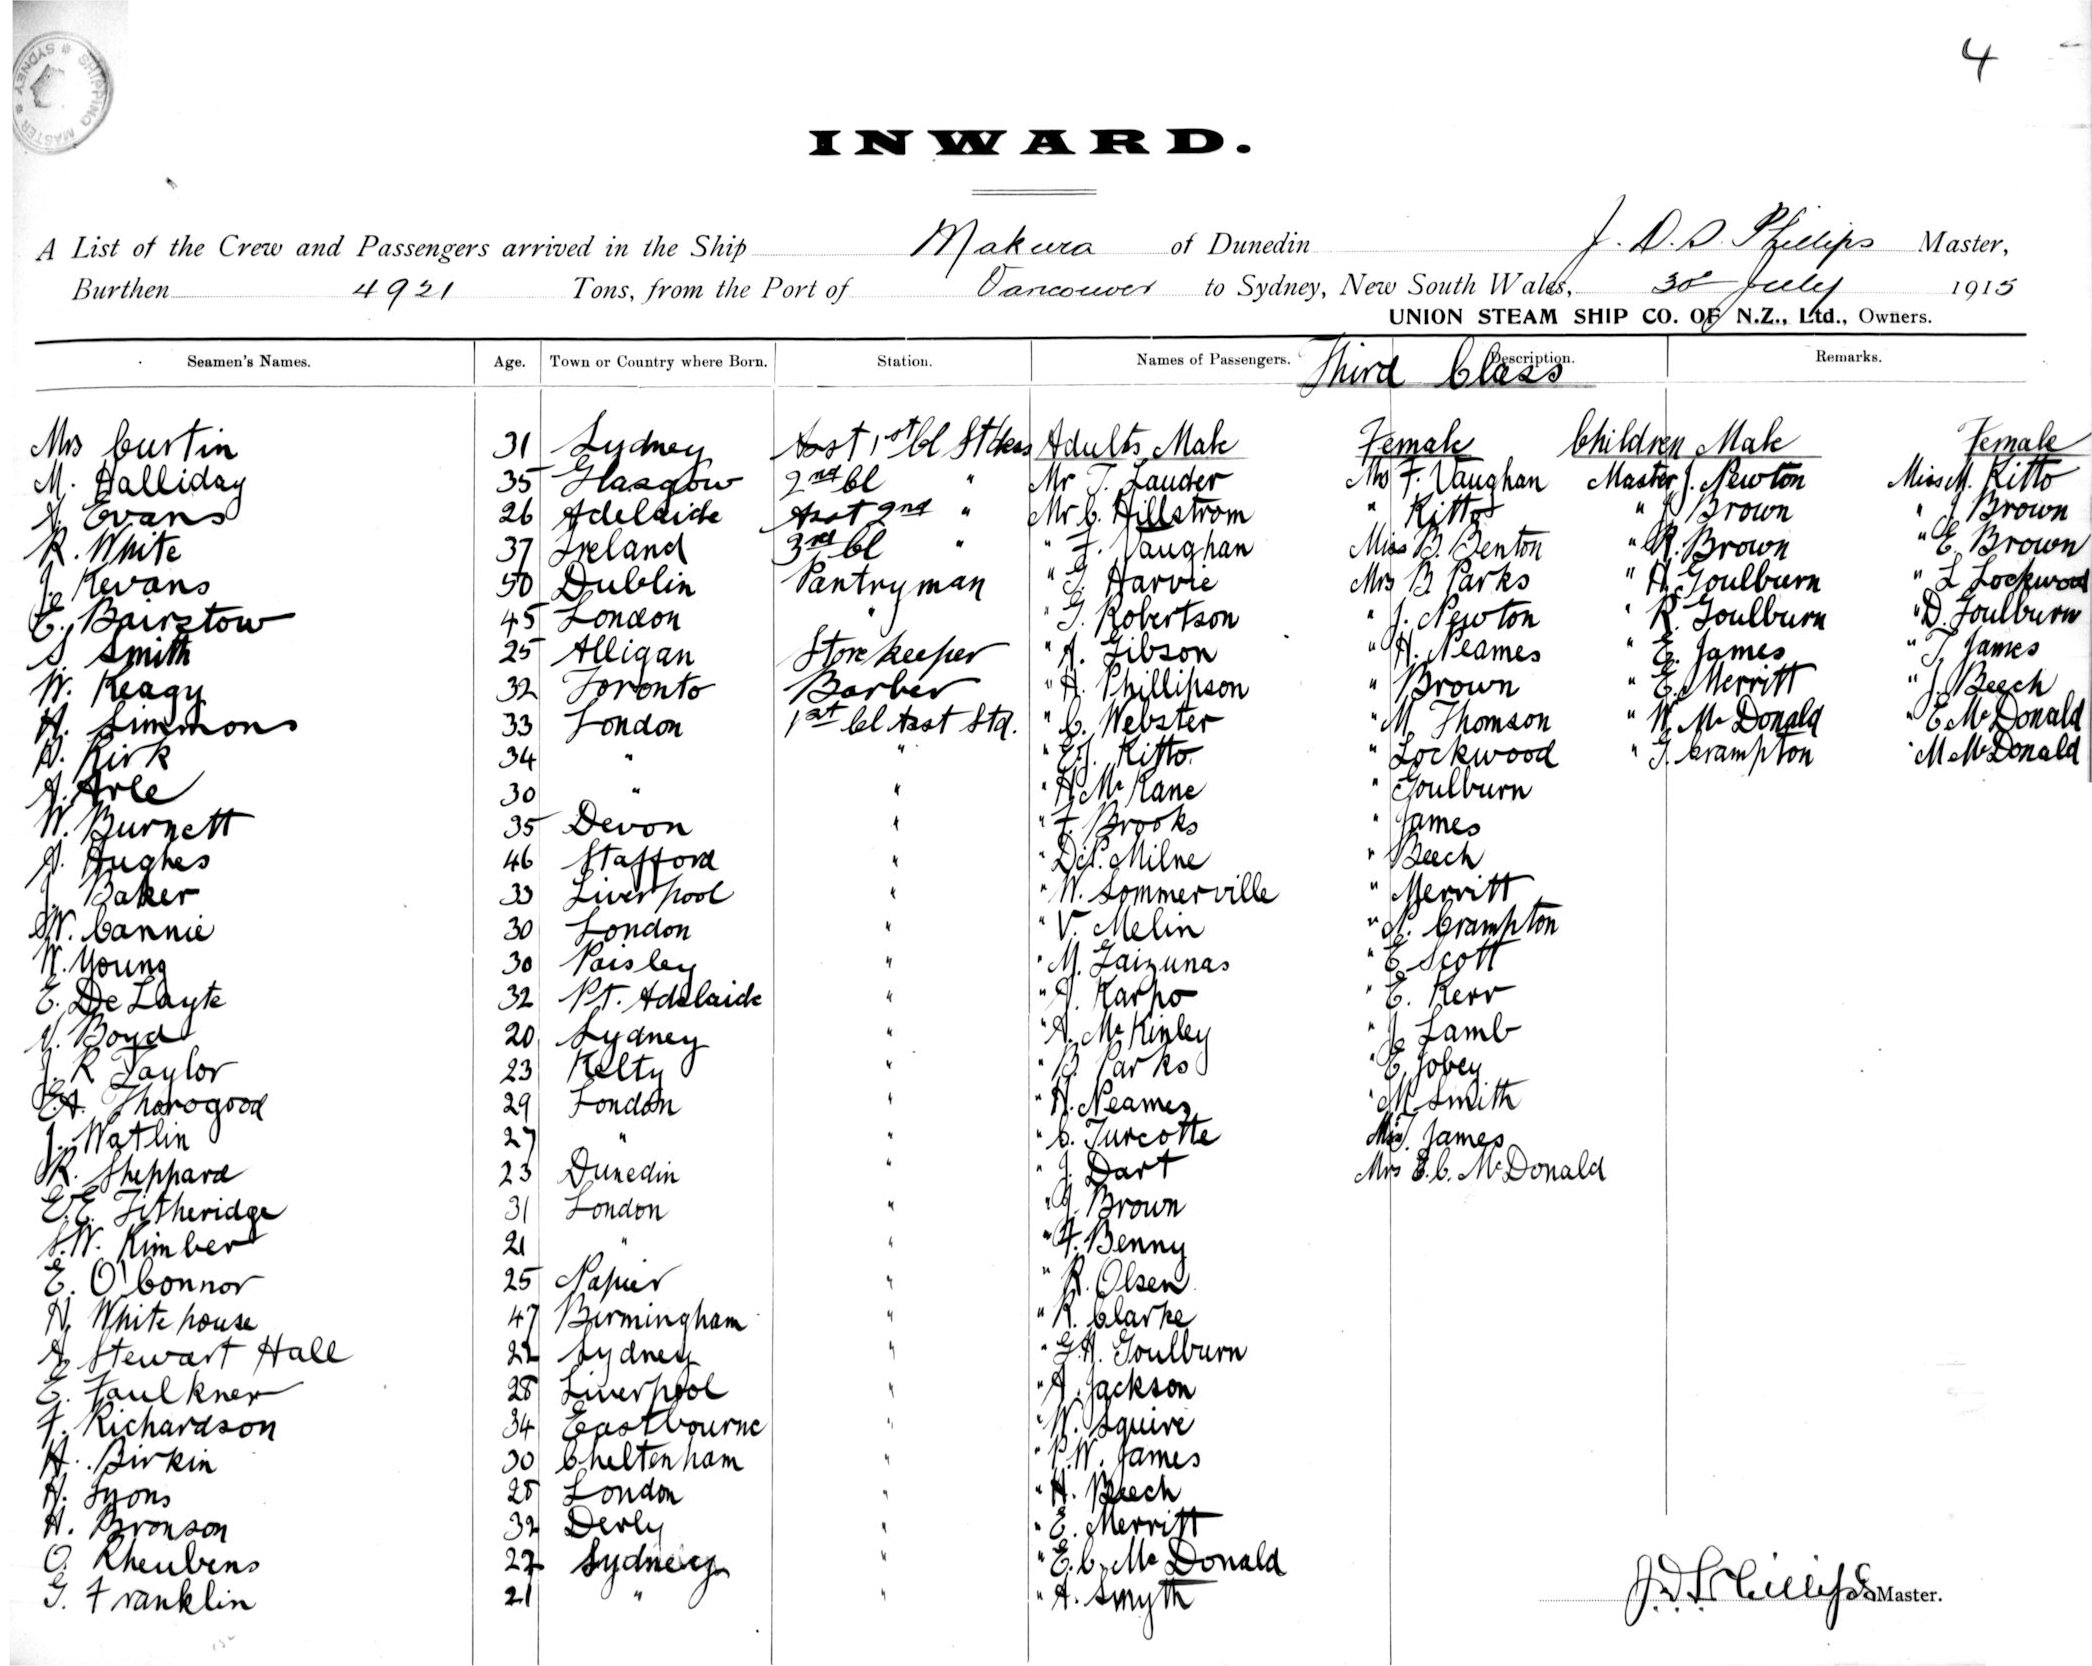 4
SHIPPING MASTER * SYDNEY *
INWARD.
A List of the Crew and Passengers arrived in the Ship Makura of Dunedin J. D. S. Phillips Master,
Burthen 4921 Tons, from the Port of Vancouver to Sydney, New South Wales, 30 July 1915
UNION STEAM SHIP CO. OF N.Z., Ltd., Owners.
Seamen's Names. Age. Town or Country where Born. Station. Names of Passengers. Third Class Description. Remarks.
Mrs Curtin 31 Sydney Asst 1st Cl Stdess Adults Male Female Children Male Female
M. Halliday 35 Glasgow 2nd Cl " Mr T. Lauder Mrs F. Vaughan Master J. Newton Miss M. Kitto
A. Evans 26 Adelaide Asst 2nd " Mr C. Hillstrom " Kitto " J Brown " J Brown
R. White 37 Ireland 3rd Cl " " F. Vaughan Miss B. Benton " R. Brown " E Brown
J. Kevans 50 Dublin Pantryman " G. Harvie Mrs B Parks " H. Goulburn " L Lockwood
E. Bairstow 45 London " " G. Robertson " J. Newton " R. Goulburn " D. Goulburn
S. Smith 25 Alligan Storekeeper " A. Gibson " H. Neames " E. James " T. James
W. Keagy 32 Toronto Barber " H. Phillipson " Brown " E. Merritt " J. Beech
H. Simmons 33 London 1st Cl Asst Std. " C. Webster " M Thomson " W. McDonald " E McDonald
D. Kirk 34 " " " E.J. Kitto " Lockwood " G. Crampton " M McDonald
A. Arle 30 " " " H McKane " Goulburn
W. Burnett 35 Devon " " F. Brooks " James
A. Hughes 46 Stafford " " Milne " Beech
J. Baker 33 Liverpool " " W. Sommerville " Merritt
W. Cannie 30 London " " V. Melin " A. Crampton
W. Young 30 Paisley " " M. Zaizunas " E Scott
E. De Layte 32 Pt. Adelaide " " J. Karpo " E. Kerr
A. Boyd 20 Sydney " " A. McKinley " J. Lamb
J. R Taylor 23 Kelty " " B. Parks " E. Jobey
E.A. Thorogood 29 London " " H. Neames " M Smith
J. Watlin 27 " " " C. Turcotte Miss T. James
R. Sheppard 23 Dunedin " " J. Dart Mrs E. C. McDonald
E. E. Titheridge 31 London " " J. Brown
S.W. Kimber 21 " " " F. Benny
E. O'Connor 25 Napier " " R. Olsen
H. Whitehouse 47 Birmingham " " R. Clarke
A Stewart Hall 22 Sydney " " G.H. Goulburn
E. Faulkner 28 Liverpool " " A. Jackson
F. Richardson 34 Eastbourne " " W. Squire
H. Birkin 30 Cheltenham " " P.W. James
H. Lyons 28 London " " H. Beech
H. Bronson 32 Derby " " E. Merritt
O. Rheubens 27 Sydney " " E.C. McDonald
G. Franklin 21 " " " A. Smyth
J.D.S. Phillips Master.